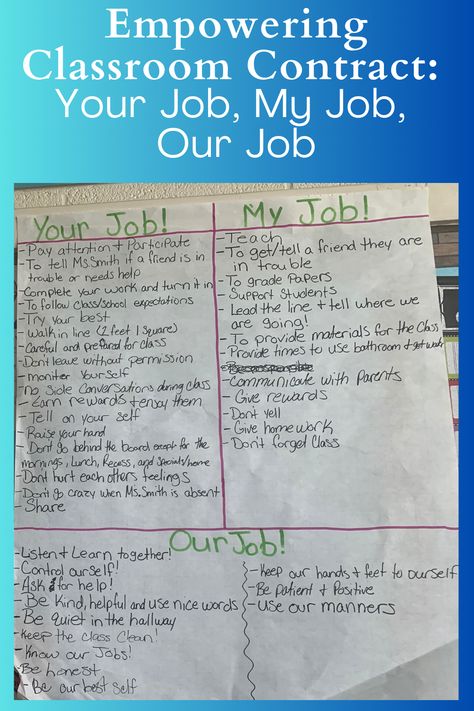 Empowering
Classroom Contract:
Your Job, My Job,
Our Job
Your Job!
-Pay attention + Participate
-To tell Ms.Smith if a friend is in
trouble or needs help
-Complete your work and turn it in
-To follow class/school expectations
-Try your best
-Walk in line (2 feet 1 square)
-Careful and prepared for class
-Dont leave without permission
-moniter yourself
-No Side Conversations during class
-Earn rewards + enjoy them
-Tell on your self
-Raise your hand
-Dont go behind the board except for the
mornings, lunch, Recess, and specials/home
-Dont hurt each others feelings
-Dont go crazy when Ms.Smith is absent
-Share
My Job!
-Teach
-To get/tell a friend they are
in trouble
-To grade Papers
-Support Students
-Lead the line + tell where we
are going!
-To provide materials for the Class
-Provide times to use bathroom + get water
-Communicate with Parents
-Give rewards
-Dont yell
-Give home work
-Don't forget Class
Our Job!
-Listen + Learn together!
-Control ourself!
-Ask for help!
-Be Kind, helpful and use nice words
-Be quiet in the hallway
-Keep the class Clean!
-Know our Jobs!
-Be honest
-Be our best self
-Keep our hands + feet to ourself
-Be patient + Positive
-Use our manners